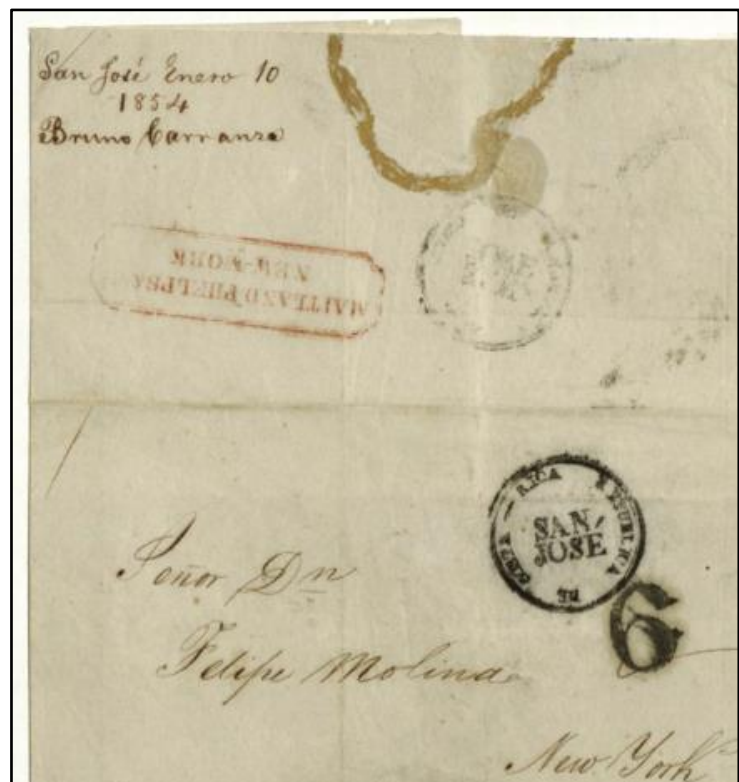 San José Enero 10
1854
Bruno Carranza
MAITLAND PHELPS
NEW-YORK
REPUBLICA DE COSTA RICA
SAN JOSE
6
Señor Dn
Felipe Molina
New York